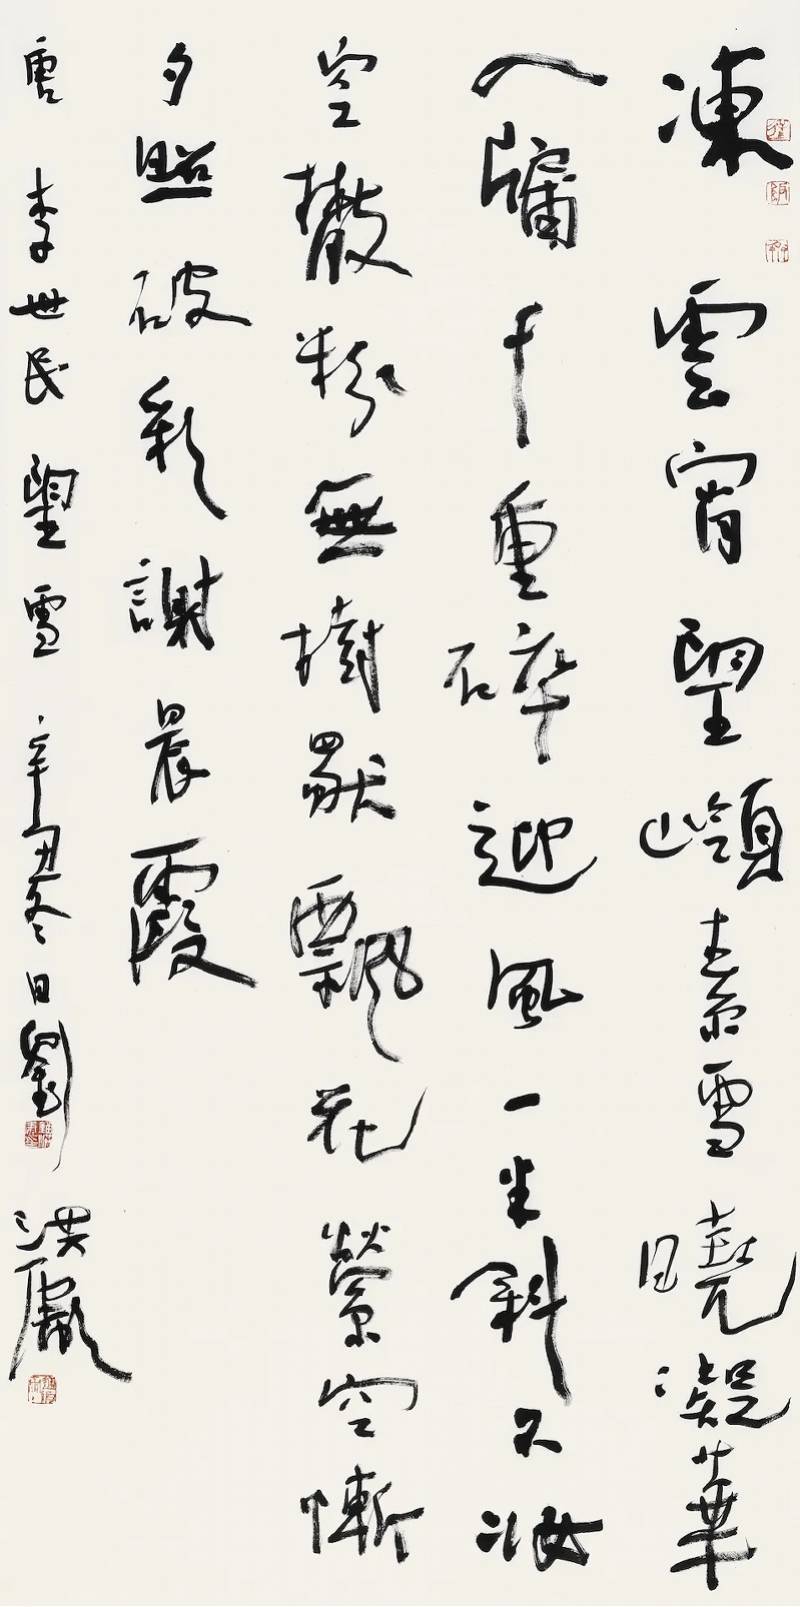 凍雲宵望嶺素雪曉凝華
入牖千重碎迎風一半斜不妝
空撒粉無樹獨飄花縈空慚
夕照破彩謝晨霞
唐李世民望雪辛丑冬日劉洪